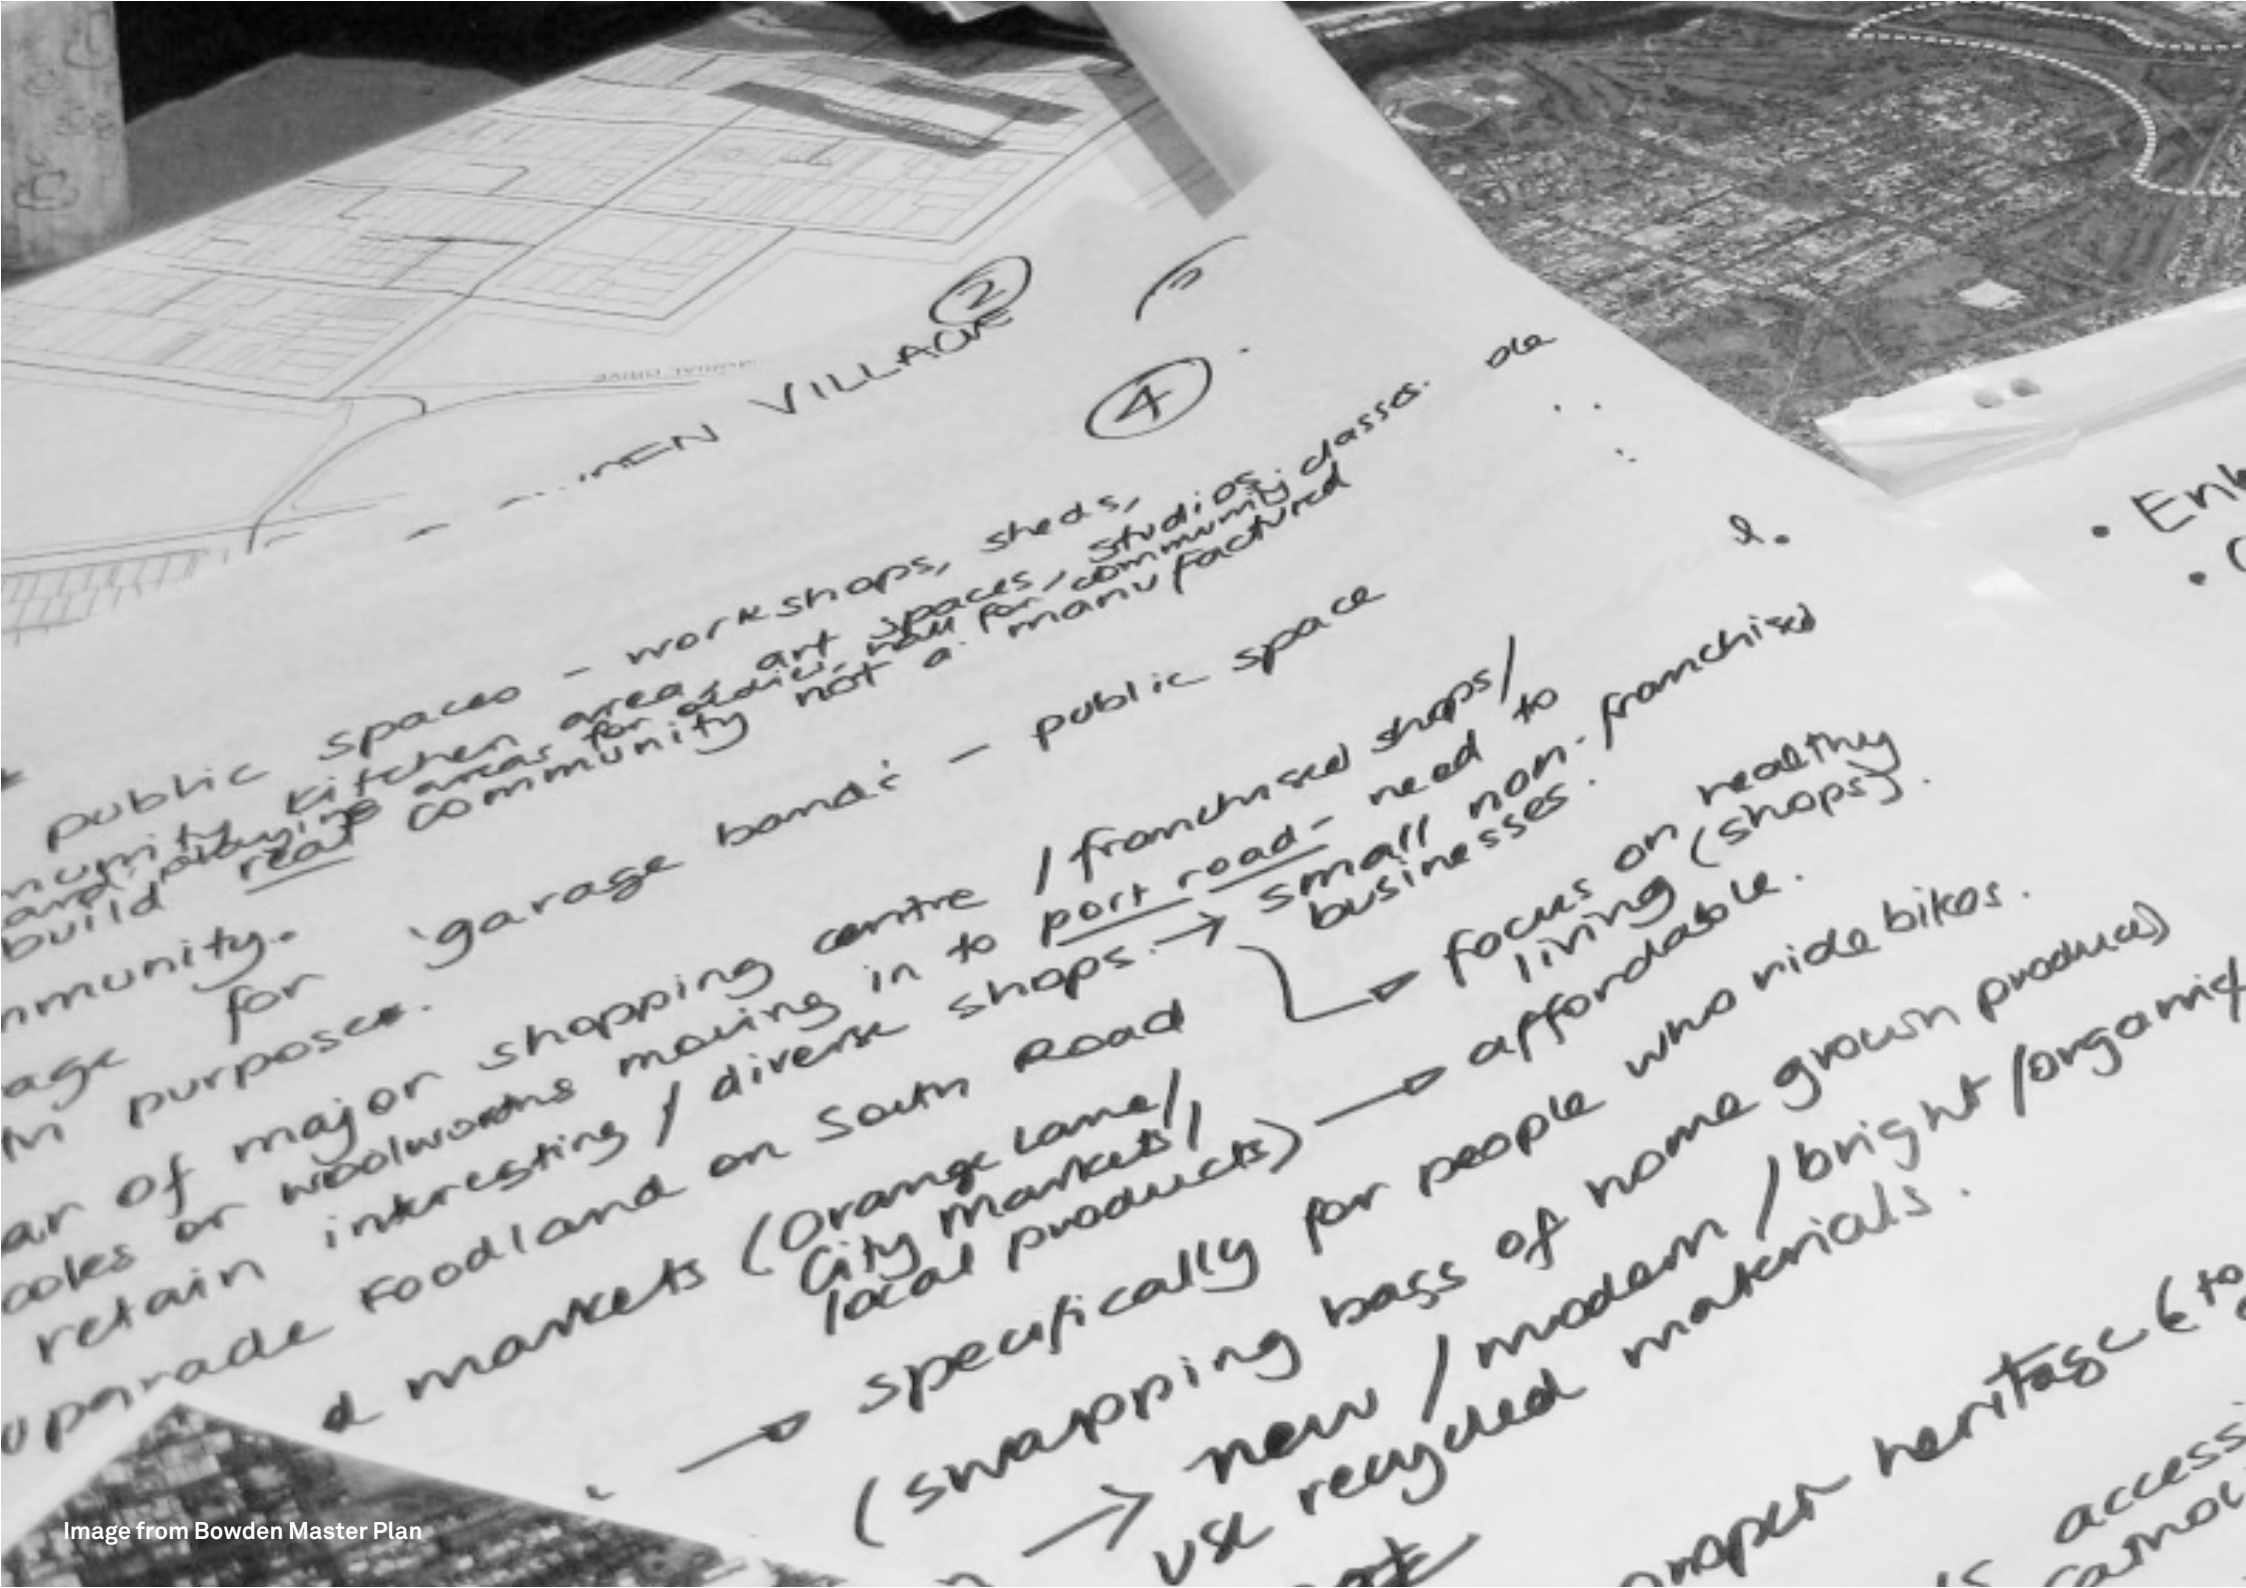 2
VILLAGE
4
public spaces - workshops, sheds,
kitchen area, art spaces, studios,
playing areas for for community classes.
build real community not a manufactured
mmunity.
for 'garage bands' - public space
purposes.
of major shopping centre / franchised shops/
or woolworths moving in to port road - need to
retain interesting / diverse shops. → small non-franchised
businesses.
→ focus on healthy
living (shops).
upgrade Foodland on South Road
markets (Orange Lane/
City Markets/
local products) → affordable.
→ specifically for people who ride bikes.
(swapping bags of home grown produce)
→ new / modern / bright /organic
use recycled materials.
heritage (to
access
Image from Bowden Master Plan